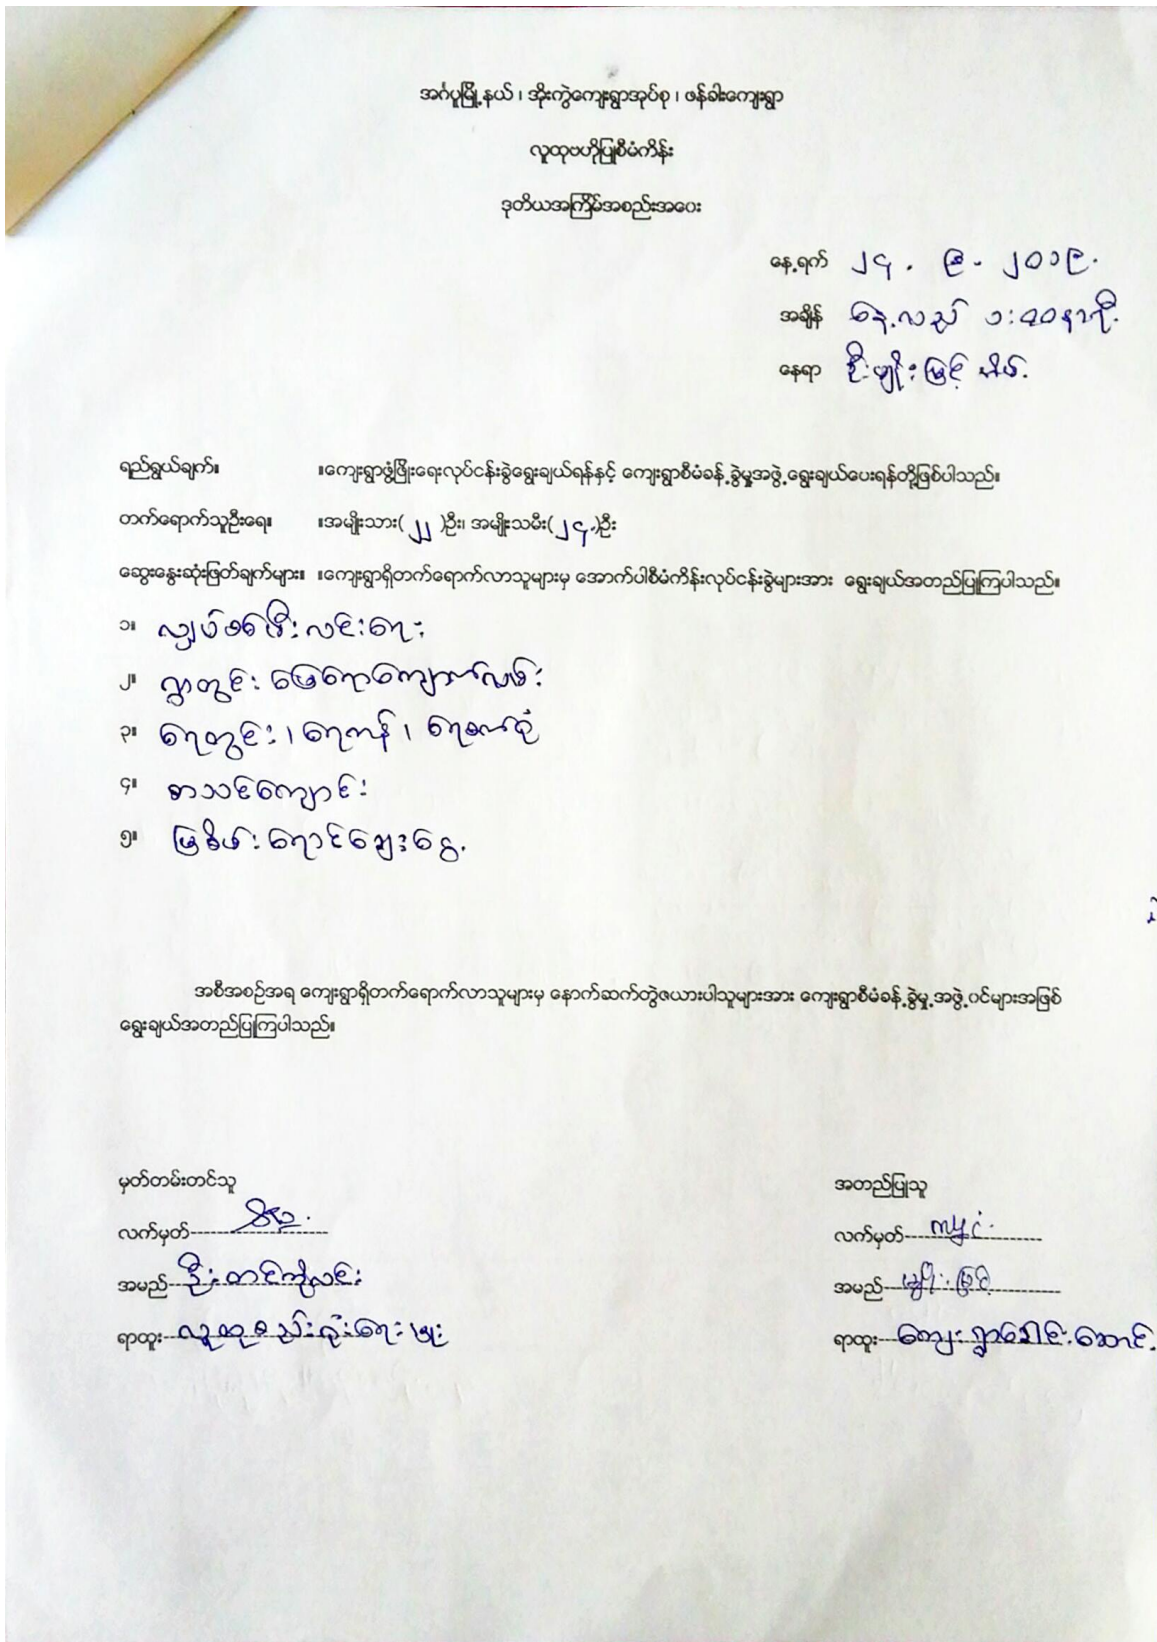 အင်္ဂပူမြို့နယ် ၊ အိုးကွဲကျေးရွာအုပ်စု ၊ ဖန်ခါးကျေးရွာ
လူထုဗဟိုပြုစီမံကိန်း
ဒုတိယအကြိမ်အစည်းအဝေး
နေ့ရက် ၂၄ . ၉ - ၂၀၁၉.
အချိန် နေ့လည် ၁:၀၀နာရီ.
နေရာ ဦးမျိုးမြင့်အိမ်.
ရည်ရွယ်ချက်။ ။ကျေးရွာဖွံ့ဖြိုးရေးလုပ်ငန်းခွဲရွေးချယ်ရန်နှင့် ကျေးရွာစီမံခန့်ခွဲမှုအဖွဲ့ရွေးချယ်ပေးရန်တို့ဖြစ်ပါသည်။
တက်ရောက်သူဦးရေ။ ။အမျိုးသား( ၂၂ )ဦး၊ အမျိုးသမီး( ၂၄. )ဦး
ဆွေးနွေးဆုံးဖြတ်ချက်များ။ ။ကျေးရွာရှိတက်ရောက်လာသူများမှ အောက်ပါစီမံကိန်းလုပ်ငန်းခွဲများအား ရွေးချယ်အတည်ပြုကြပါသည်။
၁။ လျှပ်စစ်မီးလင်းရေး
၂။ ရွာတွင်းမြေကျောက်လမ်း
၃။ ရေတွင်း၊ ရေကန်၊ ရေစက်ရုံ
၄။ စာသင်ကျောင်း
၅။ မြစိမ်းရောင်ချေးငွေ.
အစီအစဉ်အရ ကျေးရွာရှိတက်ရောက်လာသူများမှ နောက်ဆက်တွဲဇယားပါသူများအား ကျေးရွာစီမံခန့်ခွဲမှု့အဖွဲ့ဝင်များအဖြစ်
ရွေးချယ်အတည်ပြုကြပါသည်။
မှတ်တမ်းတင်သူ
လက်မှတ်
အမည် ဦးတင်ကိုလင်း
ရာထူး လူထုစည်းရုံးရေးမှူး
အတည်ပြုသူ
လက်မှတ်
အမည် မျိုးမြင့်
ရာထူး ကျေးရွာခေါင်းဆောင်.